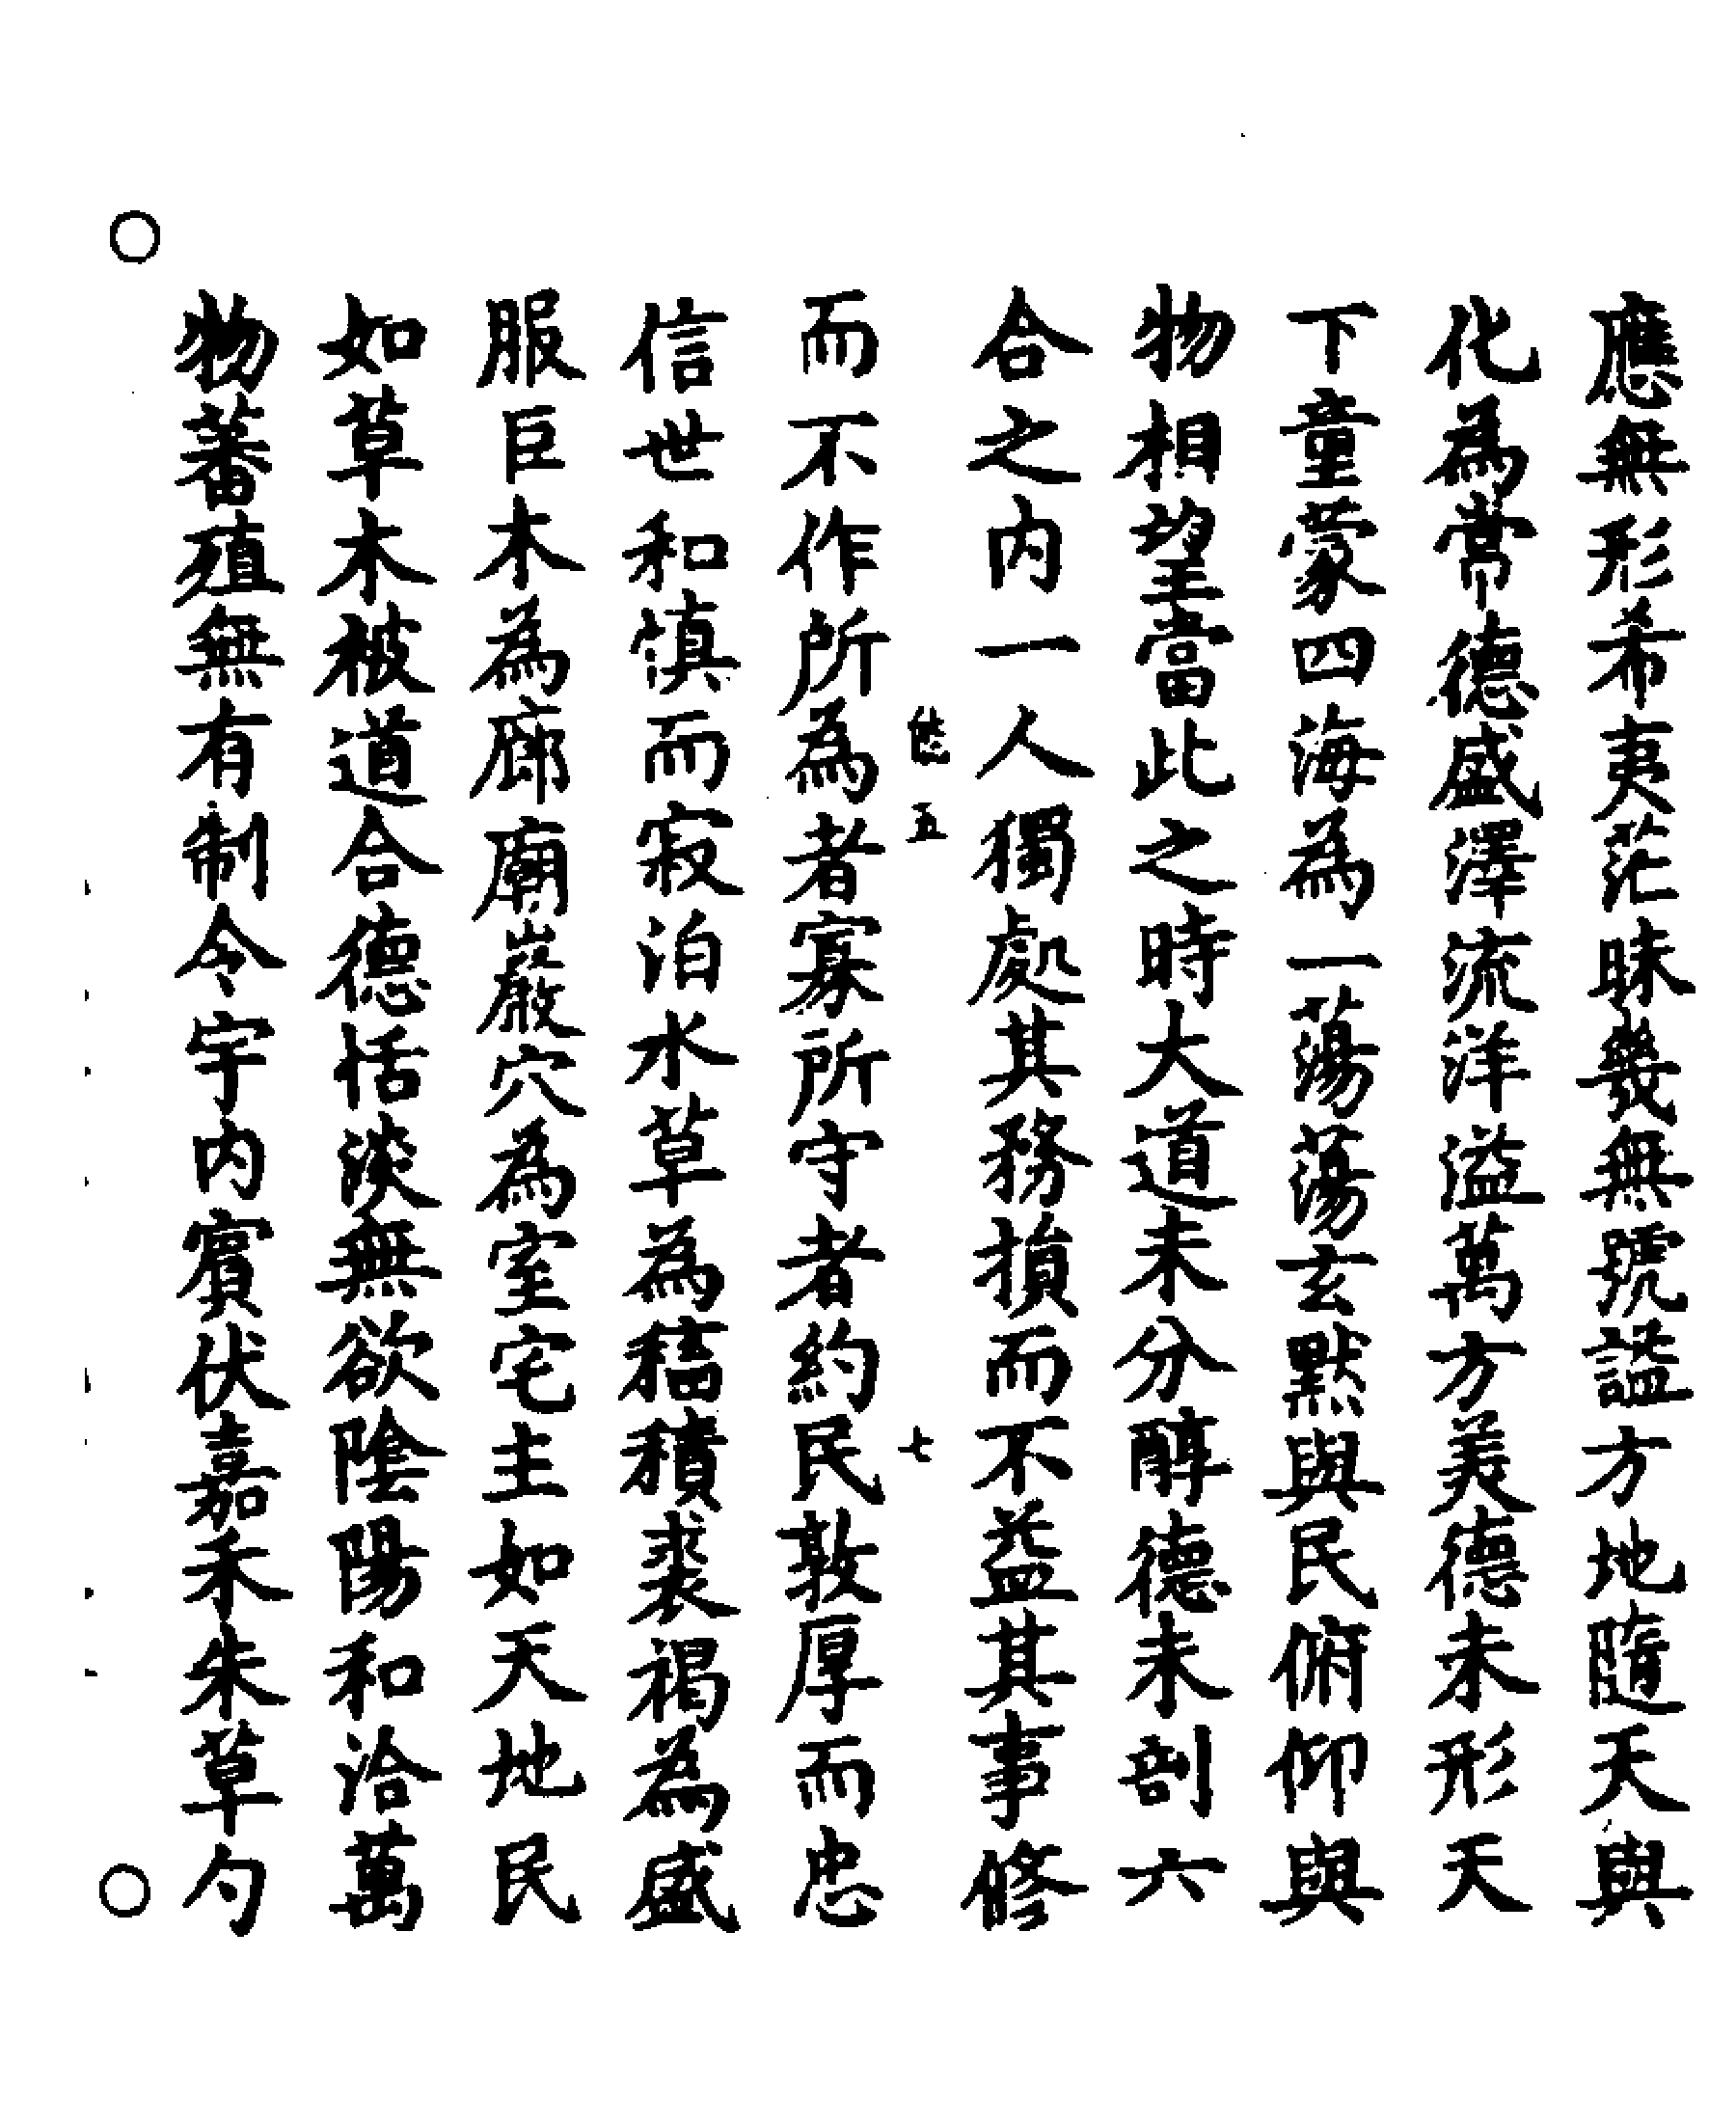 應無形希夷茫昧幾無號謚方地隨天與
化為常德盛澤流洋溢萬方美德未形天
下童蒙四海為一蕩蕩玄默與民俯仰與
物相望當此之時大道未分醇德未剖六
合之内一人獨處其務損而不益其事修
五 七
而不作所為者寡所守者約民敦厚而忠
信世和慎而寂泊水草為稸積裘褐為盛
服巨木為廊廟巖穴為室宅主如天地民
如草木被道合德恬淡無欲陰陽和洽萬
物蕃殖無有制令宇内賓伏嘉禾朱草勺